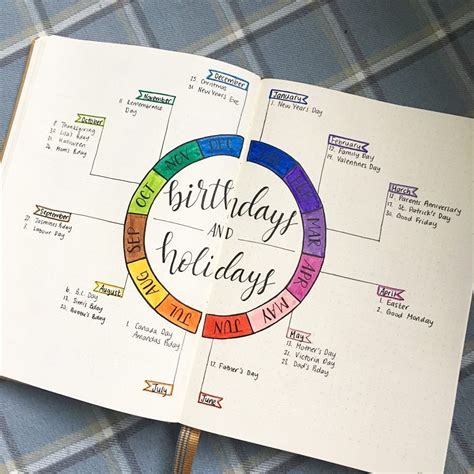 December
25. Christmas
31. New Years Eve
November
11. Remembrance
Day
October
8. Thanksgiving
31. Halloween
26. Mom's Bday
September
Labour Day
August
6. B.C. Day
July
1. Canada Day
Amanda's Bday
January
1. New Year's Day
February
12. Family Day
14. Valentines Day
March
Parents Anniversary
17. St. Patrick's Day
30. Good Friday
April
1. Easter
2. Good Monday
May
13. Mother's Day
21. Victoria Day
Dad's Bday
June
17. Father's Day
OCT
NOV
DEC
MAR
APR
MAY
JUN
JUL
AUG
SEP
birthdays
AND
holidays